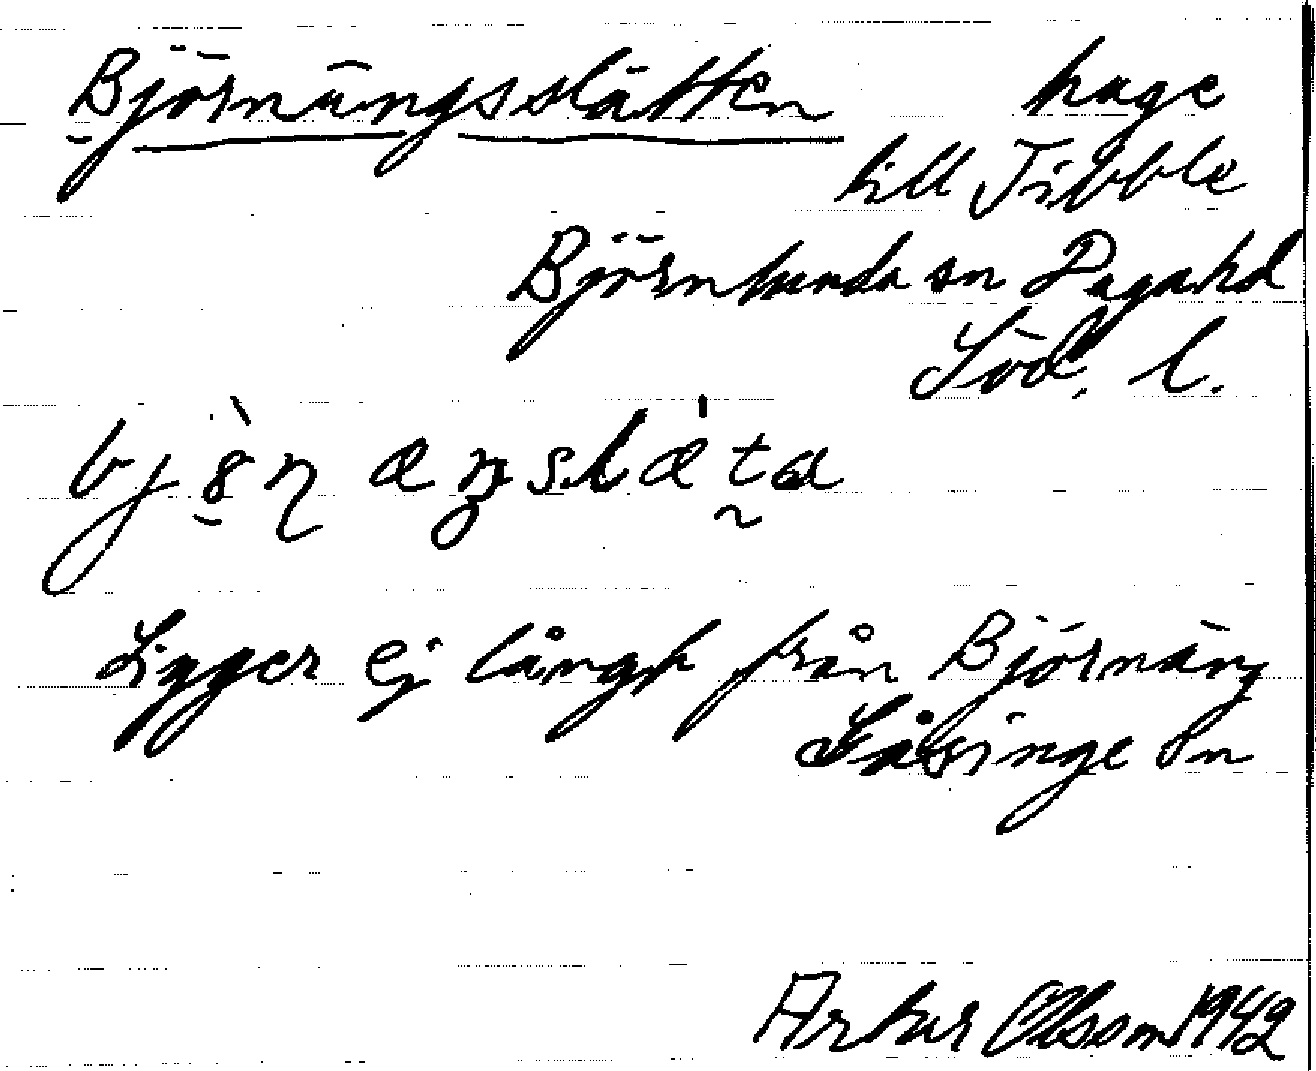 Björnängsslätten hage
till Tibble
Björnlunda sn Daga hd
Söd. l.
Ligger ej långt från Björnäng
Gåsinge sn
Artur Olsson 1942